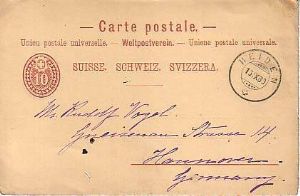 Carte postale.
Union postale universelle. — Weltpostverein. — Unione postale universale.
SUISSE. SCHWEIZ. SVIZZERA.
10
HEIDEN
Mr. Rudolf Vogel.
Gneisenau Strasse 14
Hannover.
Germany.